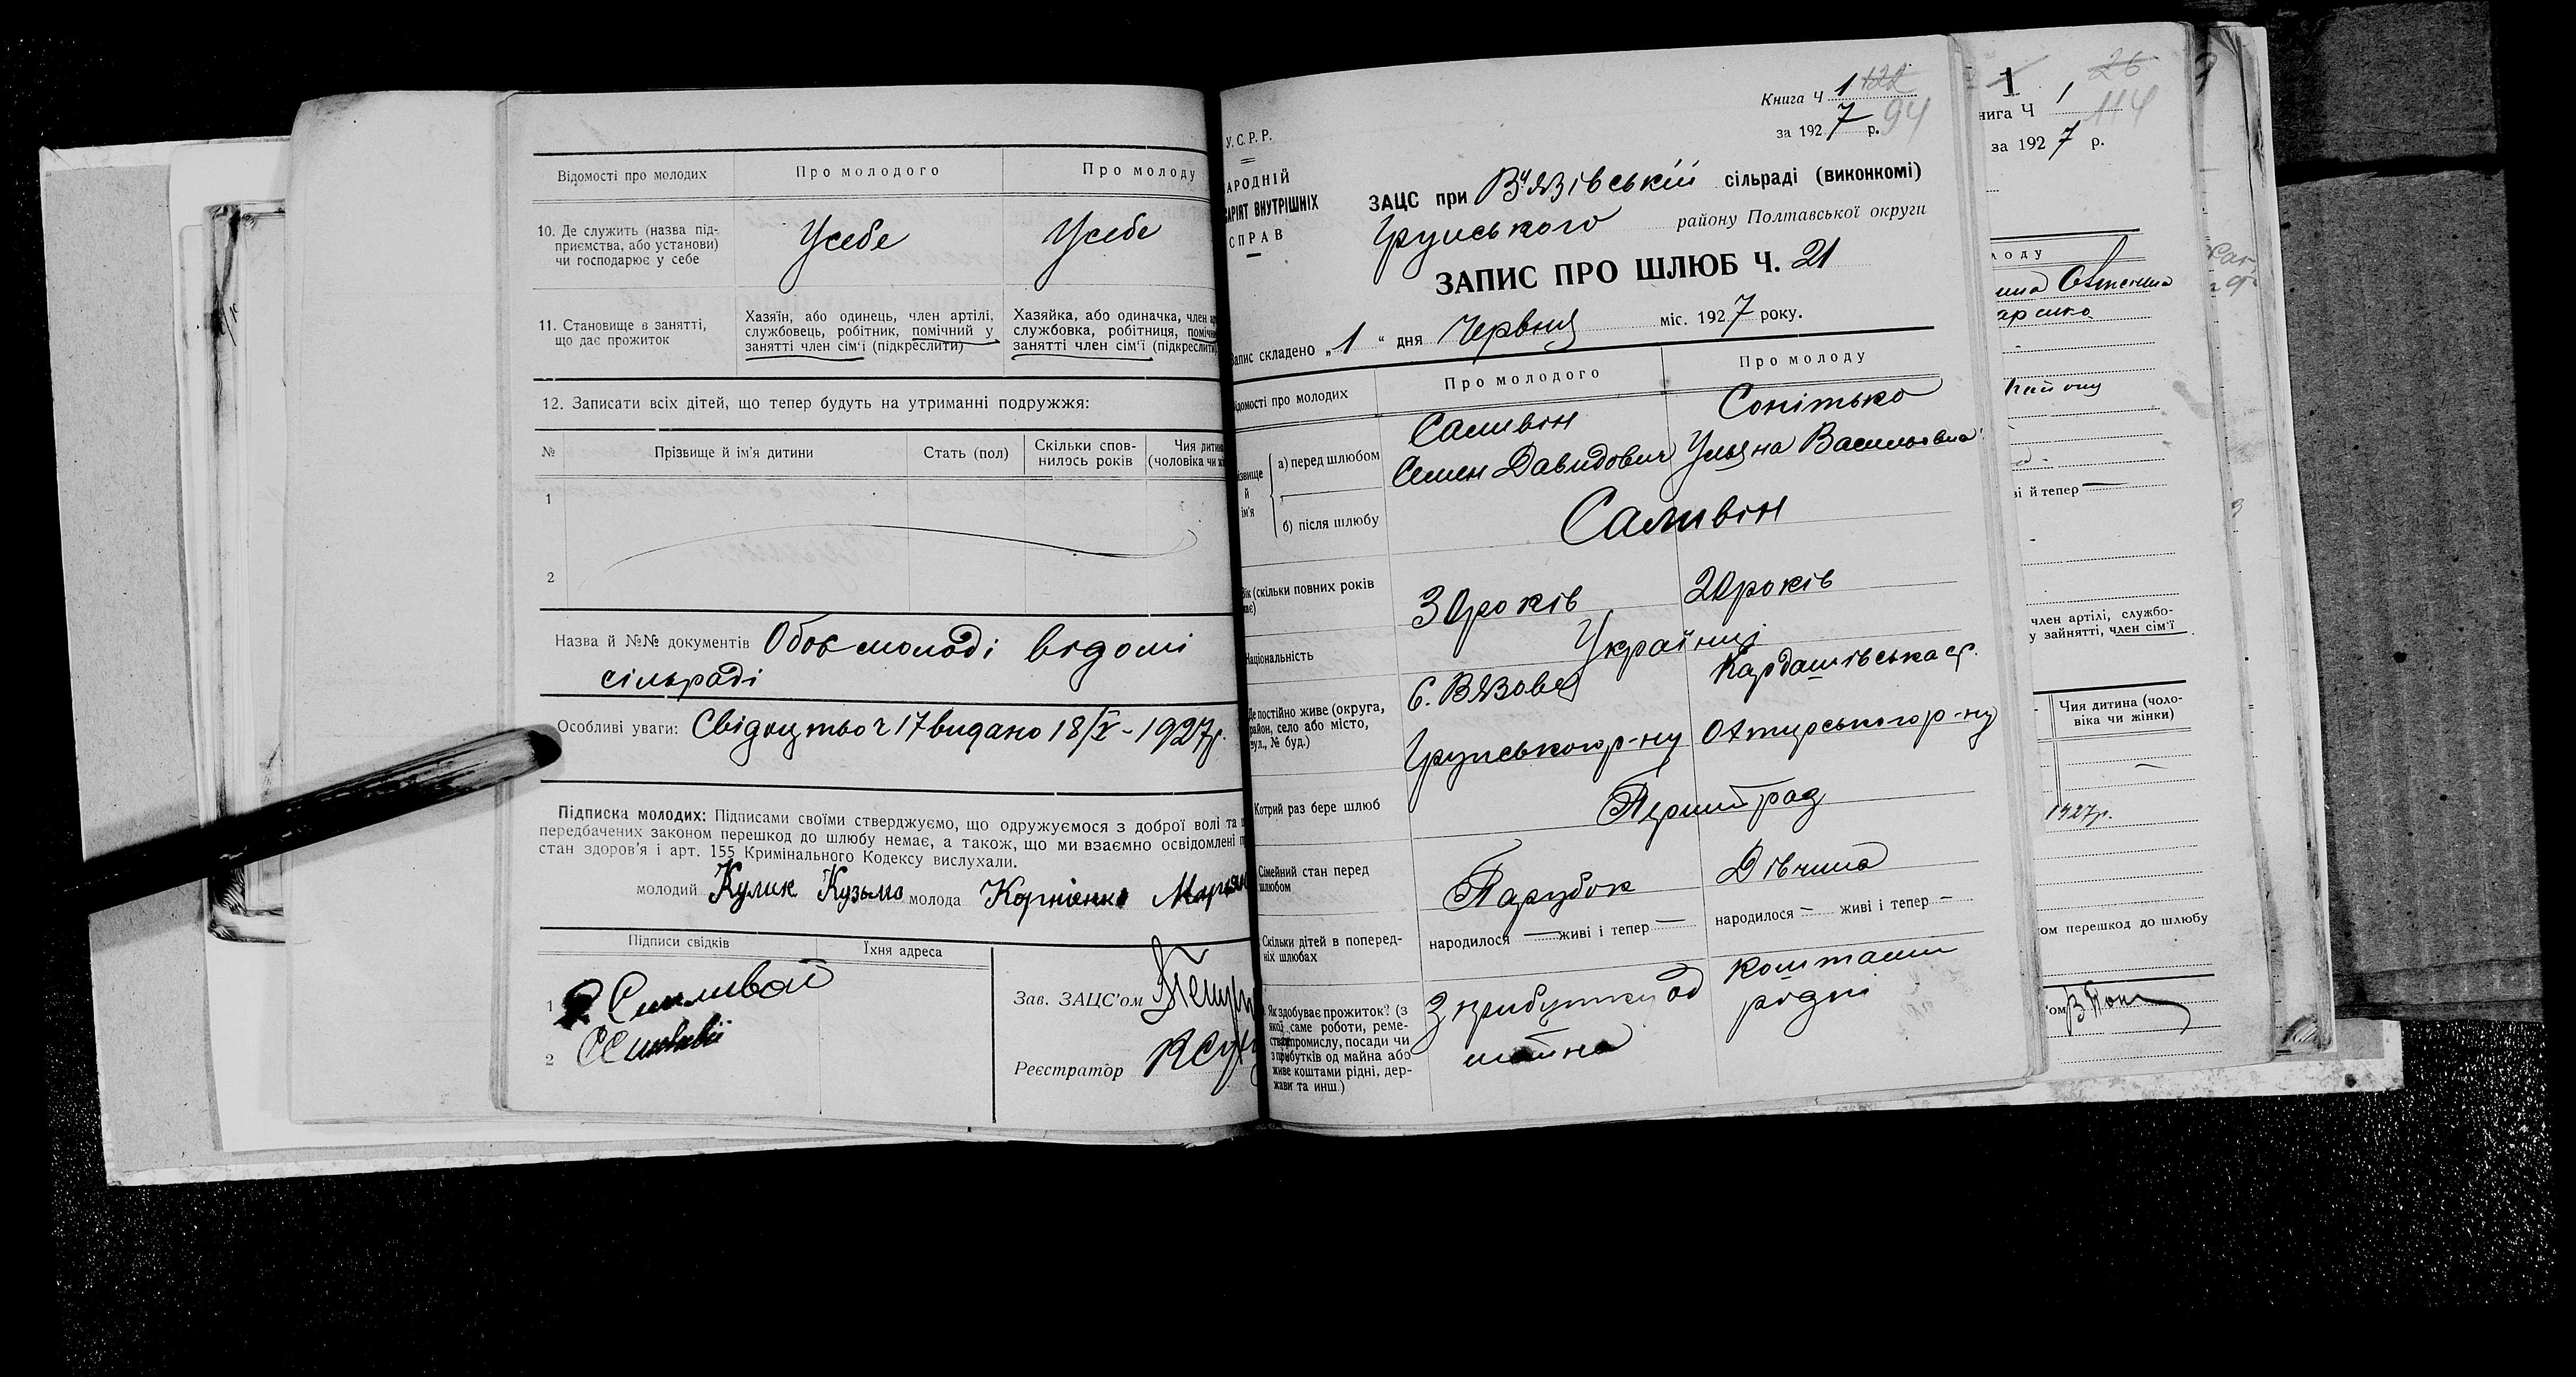 Відомості про молодих
Про молодого
Про молоду
10. Де служить (назва під-
приємства, або установи)
чи господарює у себе
Усебе
Усебе
11. Становище в занятті,
що дає прожиток
Хазяїн, або одинець, член артілі,
службовець, робітник, помічний у
занятті член сім'ї (підкреслити)
Хазяйка, або одиначка, член
службовка, робітниця,
занятті член сім'ї (підкреслити)
12. Записати всіх дітей, що тепер будуть на утриманні подружжя:
№
Прізвище й ім'я дитини
Стать (пол)
Скільки спов-
нилось років
Чия дитина
(чоловіка чи
1
2
Назва й №№ документів Обоє молоді відомі
сільраді
Особливі уваги: Свідоцтво ч 17 видано 18/V - 1927р.
Підписка молодих: Підписами своїми стверджуємо, що одружуємося з доброї волі та
передбачених законом перешкод до шлюбу немає, а також, що ми взаємно освідомлені
стан здоров'я і арт. 155 Кримінального Кодексу вислухали.
молодий Кулик Кузьма молода Корнієнко
Підписи свідків
Їхня адреса
1
2
Зав. ЗАЦС'ом
Реєстратор
Книга Ч 1 122
за 1927 р. 94
У.С.Р.Р.
АРОДНІЙ
АРІЯТ ВНУТРІШНІХ
СПРАВ
ЗАЦС при В'язівській сільраді (виконкомі)
Грунського району Полтавської округи
ЗАПИС ПРО ШЛЮБ Ч. 21
Запис складено „1“ дня Червня міс. 1927 року.
ідомості про молодих
Про молодого
Про молоду
ізвище
й
ім'я
а) перед шлюбом
Саливін
Семен Давидович
Сопітько
Ульяна Васильовна
б) після шлюбу
Саливін
Вік (скільки повних років
має)
30 років
20 років
Національність
Українці
Де постійно живе (округа,
район, село або місто,
вул., № буд.)
С. Вязове
Грунського р-ну
Кардашівська с.
Охтирського р-ну
Котрий раз бере шлюб
Перший раз
Сімейний стан перед
шлюбом
Парубок
Дівчина
Скільки дітей в поперед-
ніх шлюбах
народилося — живі і тепер —
народилося — живі і тепер —
Як здобуває прожиток? (з
якої саме роботи, реме-
ства, промислу, посади чи
з прибутків од майна або
живе коштами рідні, дер-
жави та инш.)
З прибутку од
майна
коштами
рідні
1 26
нига Ч 1 114
за 1927 р.
лоду
і й тепер —
член артілі, службо-
у зайнятті, член сім'ї
Чия дитина (чоло-
віка чи жінки)
1927р.
ом перешкод до шлюбу
'ом